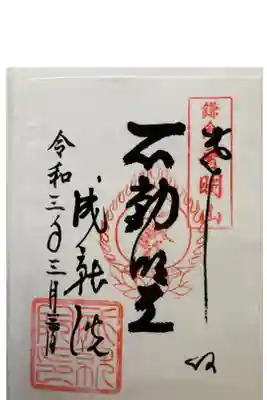 奉拝
鎌倉 普明山
不動明王
成就院
令和三年三月三日